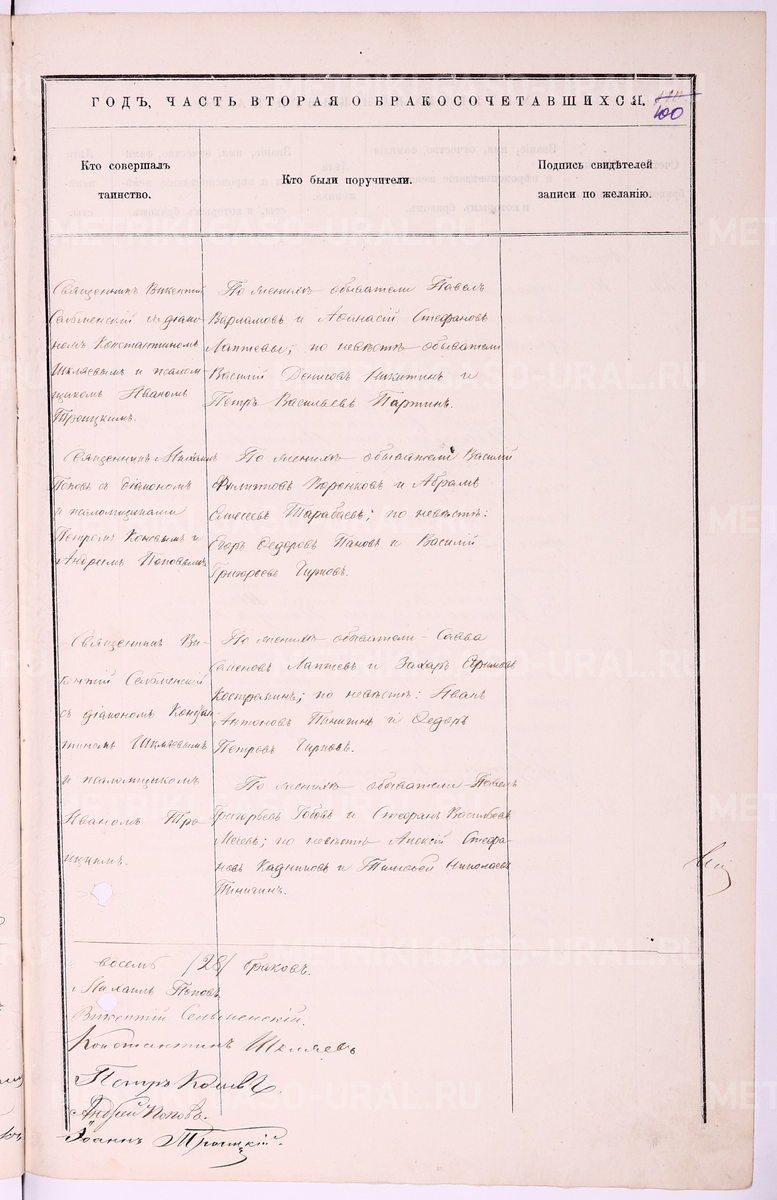 ГОДЪ, ЧАСТЬ ВТОРАЯ О БРАКОСОЧЕТАВШИХСЯ.
100
Кто совершалъ
таинство.
Кто были поручители.
Подпись свидѣтелей
записи по желанію.
Священникъ Викентій
Сельменскій съ діако-
номъ Константиномъ
Шкляевымъ и псалом-
щикомъ Иваномъ
Троицкимъ.
По женихѣ обыватели Павелъ
Варламовъ и Аѳанасій Стефановъ
Лаптевы; по невѣстѣ обыватели
Василій Денисовъ Никитинъ и
Петръ Васильевъ Партинъ.
Священникъ Михаилъ
Поповъ съ діакономъ
и псаломщиками
Петромъ Коневымъ и
Андреемъ Поповымъ
По женихѣ обыватели Василій
Филипповъ и Абрамъ
Тарабаевъ; по невѣстѣ:
Егоръ Ѳедоровъ Пановъ и Василій
Григорьевъ Чирковъ.
Священникъ Ви-
кентій Сельменскій
съ діакономъ Констан
тиномъ Шкляевымъ
и псаломщикомъ
Иваномъ Тро
ицкимъ.
По женихѣ обыватели Савва
Лаптевъ и Захаръ
Костромин; по невѣстѣ: Иванъ
Антоновъ Пинигинъ и Ѳедоръ
Петровъ Чирковъ.
По женихѣ обыватели Павелъ
Григорьевъ и Стефанъ Васильевъ
по невѣстѣ Алексій Стефа
новъ Кадниковъ и Тимофей Николаевъ
Пинигинъ.
восемь /28/ браковъ.
Михаилъ Поповъ
Викентій Сельменскій.
Константинъ Шкляевъ
Петръ Коневъ
Андрей Поповъ.
Іоаннъ Троицкій.
METRIKI.GASO-URAL.RU